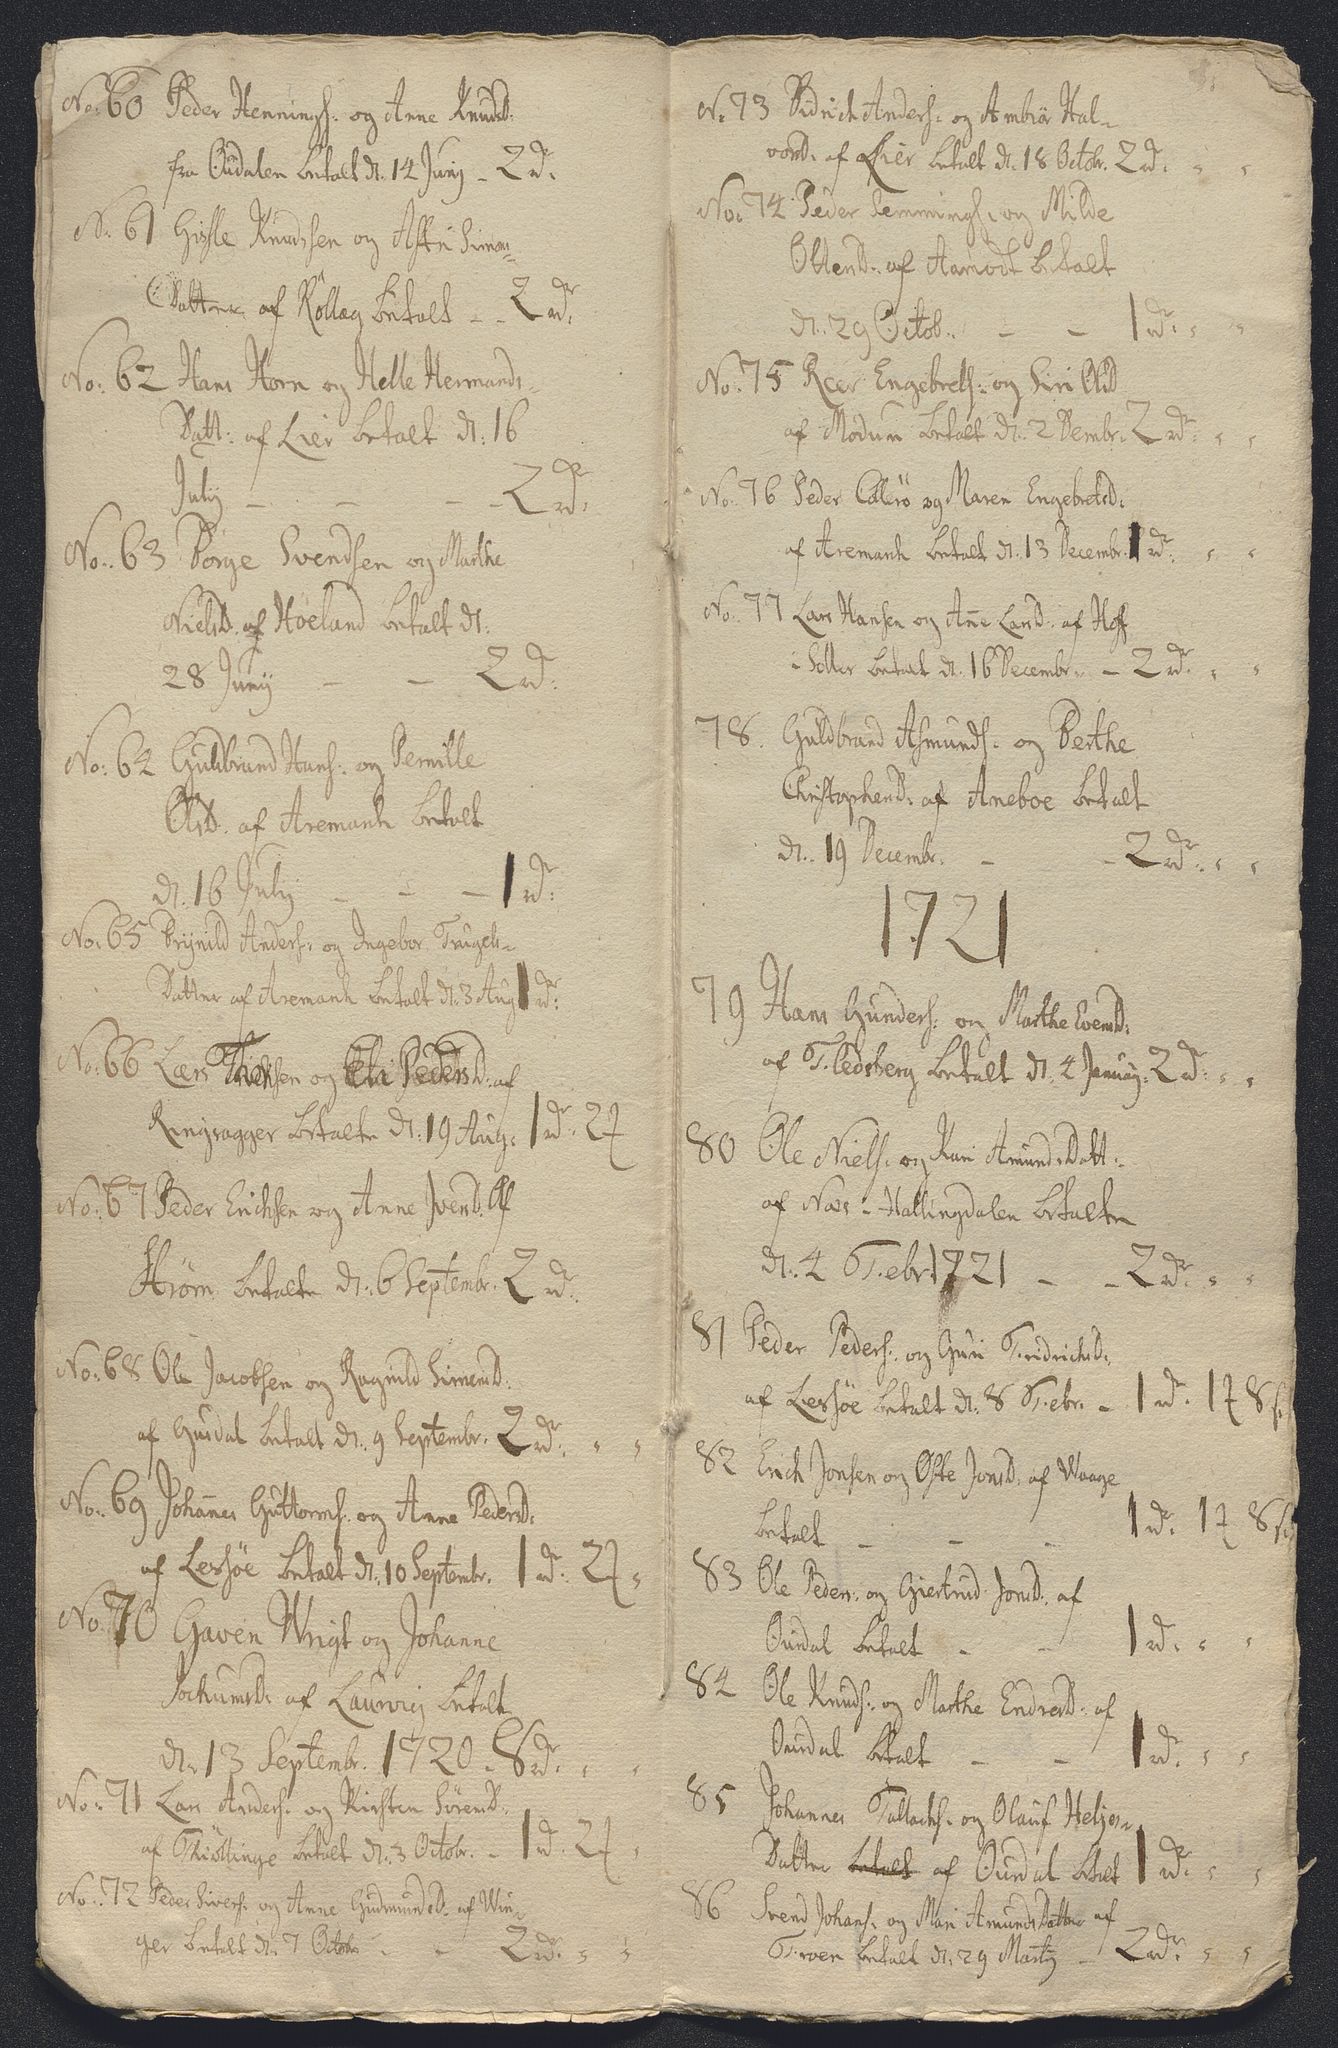 No: 60 Peder Hennings: og Anne Knudsd:
fra Oudalen betalt d: 14 Junij - 2 rd:
No: 61 Gisle Knudsen og Simons-
Datter af Rollag betalt - - 2 rdr:
No: 62 Hans Horn og Helle Hermands-
Datt: af Lier betalt d: 16
July - - - 2 rdr:
No: 63 Børge Svendsen og Marthe
Nielsd: af Høeland betalt d:
28 Junij - - 2 rd:
No: 64 Guldbrand Hans: og Pernille
Olsd: af Aremark betalt
d: 16 July - - - 1 rdr:
No: 65 Brynild Anders: og Ingebor Trugels-
Datter af Aremark betalt d: 3 Aug 1 rdr:
No: 66 Lars og Pedersd: af
Ringsagger betalte d: 19 Aug: 1 rdr. 2
No: 67 Peder Erichsen og Anne Iversd: Af
Strøm betalte d: 6 Septembr. 2 rdr.
No: 68 Ole Jacobsen og Ragnild Simensd:
af Gusdal betalt d: 9 Septembr. 2 rdr: " "
No: 69 Johanes Guttorms: og Anne Pedersd:
af Lessøe betalt d: 10 Septembr. 1 rdr. 2 "
No: 70 Gaven Wrigt og Johanne
Jochumsd: af Laurvig betalt
d: 13 Septembr. 1720 - 8 rdr. " "
No: 71 Lars Anders: og Kirsten Sørensd:
af Tiøllinge betalt d: 3 Octobr. - 1 rd. 2 "
No: 72 Peder Sivers: og Anne Gudmundsd: af Win-
ger betalt d: 7 Octobr - - 2 rdr. " "
No 73 Didrich Anders: og Ambiør Hal-
vorsd: af Lier betalt d: 18 Octobr. 2 rdr. " "
No: 74 Peder Hemmings: og Milde
Ottersd: af Aamodt betalt
d: 29 Octob. - - 1 rdr. " "
No: 75 Roer Engebrets: og Siri Olsd
af Modum betalt d: 2 Dembr. 2 rdr. " "
No: 76 Peder og Maren Engebretsd:
af Aremark betalt d: 13 Decembr. 1 rdr. " "
No: 77 Lars Hansen og Añe Larsd: af Hoff
i Soller betalt d: 16 Decembr. - 2 rdr. " "
78. Guldbrand Asmunds: og Berthe
Christophersd: af Aneboe betalt
d: 19 Decembr. - - 2 rdr. " "
1721
79 Hans Gunders: og Marthe Evensd:
af Fledsberg betalt d: 4 January. 2 rdr. " "
80 Ole Niels: og Kari Amunds Datt:
af Næs i Hallingdalen betalte
d: 4 Febr 1721 - - 2 rdr. " "
81 Peder Peders: og Guri Fridrichsd:
af Lessøe betalt d: 8 Febr. - 1 rdr. 1 8 s
82 Erich Jonsen og Joensd: af Waage
betalt - - - 1 rdr. 1 8 s
83 Ole Peders: og Giertrud Jonsd: af
Ourdal betalt - - 1 rdr. " "
84 Ole Knuds: og Marthe Endresd: af
Ourdal betalt - - 1 rdr. " "
85 Johannes Tallachs: og Olauf Heljes-
Datter betalt af Ourdal betalt 1 rdr. " "
86 Svend Johans: og Mari Amunds Datter af
betalt d: 29 Martij - 2 rdr. " "